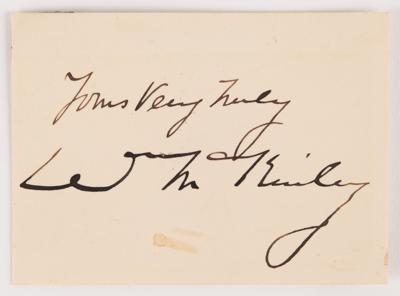 Yours Very Truly
Wm McKinley